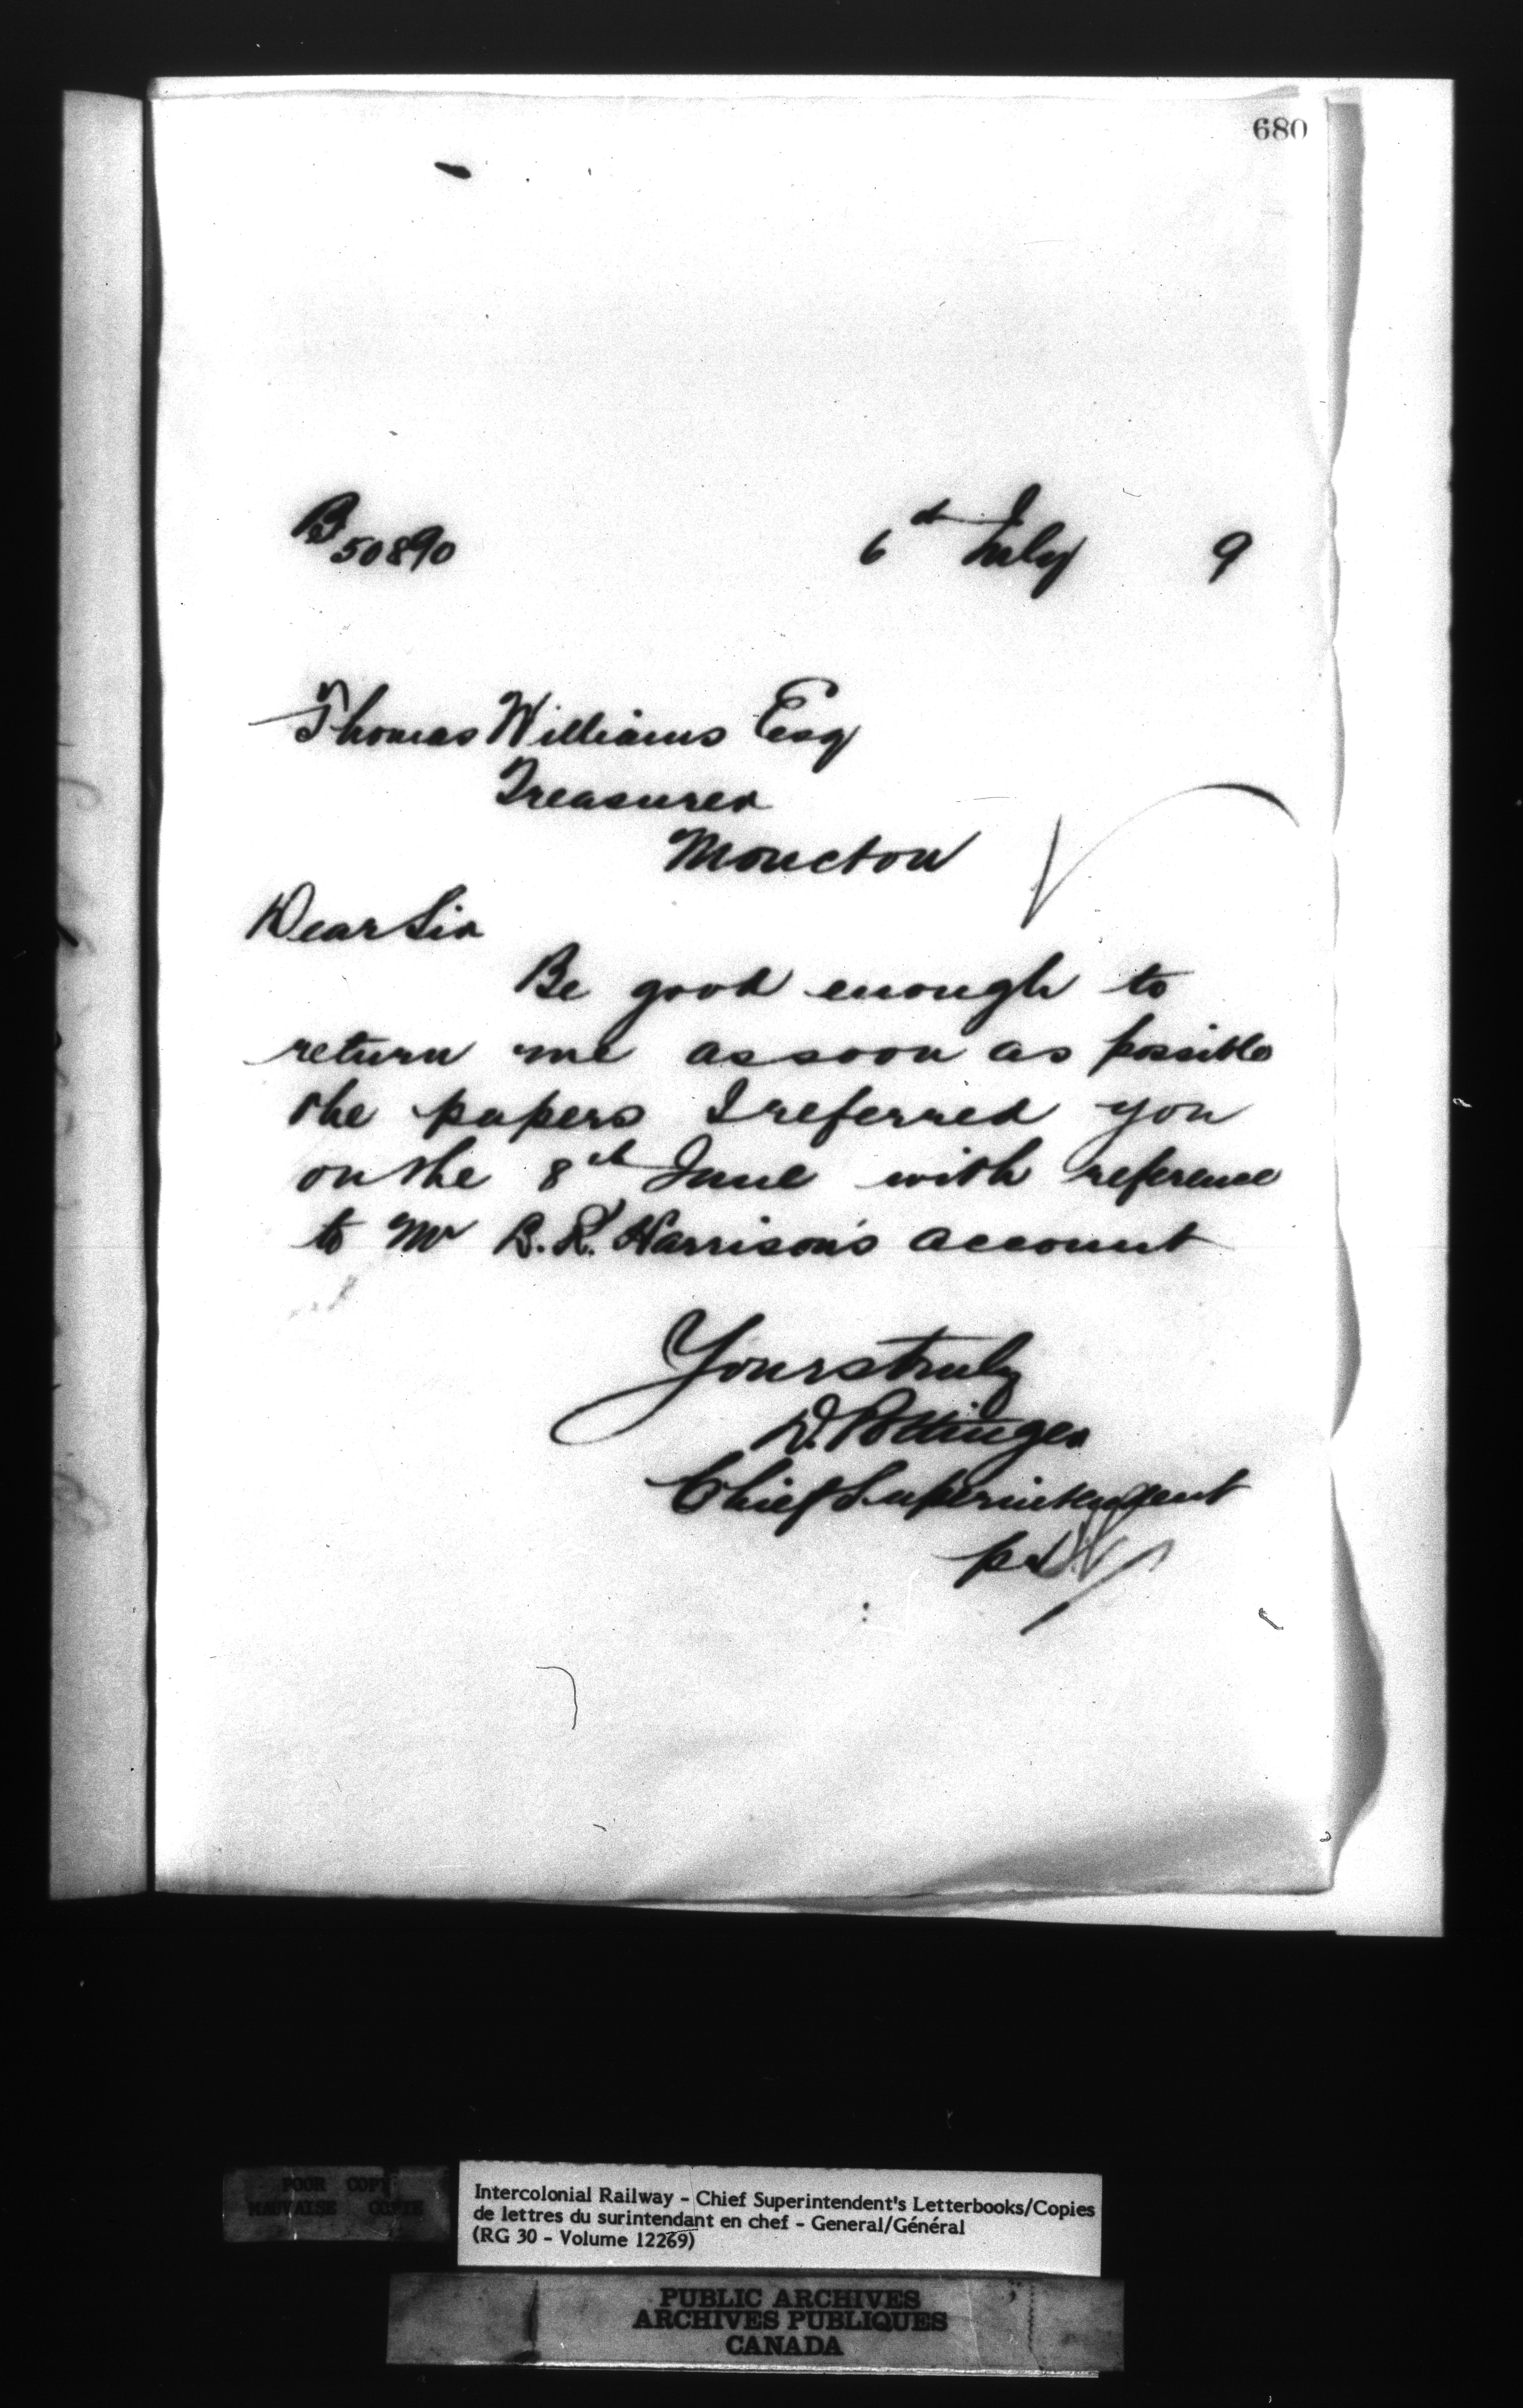 680
B 50890
6th July 9
Thomas Williams Esq
Treasurer
Moncton
Dear Sir
Be good enough to
return me as soon as possible
the papers I referred you
on the 8th June with reference
to Mr B. R. Harrison's account
Yours truly
D. Pottinger
Chief Superintendent
POOR COPY
MAUVAISE COPIE
Intercolonial Railway - Chief Superintendent's Letterbooks/Copies
de lettres du surintendant en chef - General/Général
(RG 30 - Volume 12269)
PUBLIC ARCHIVES
ARCHIVES PUBLIQUES
CANADA